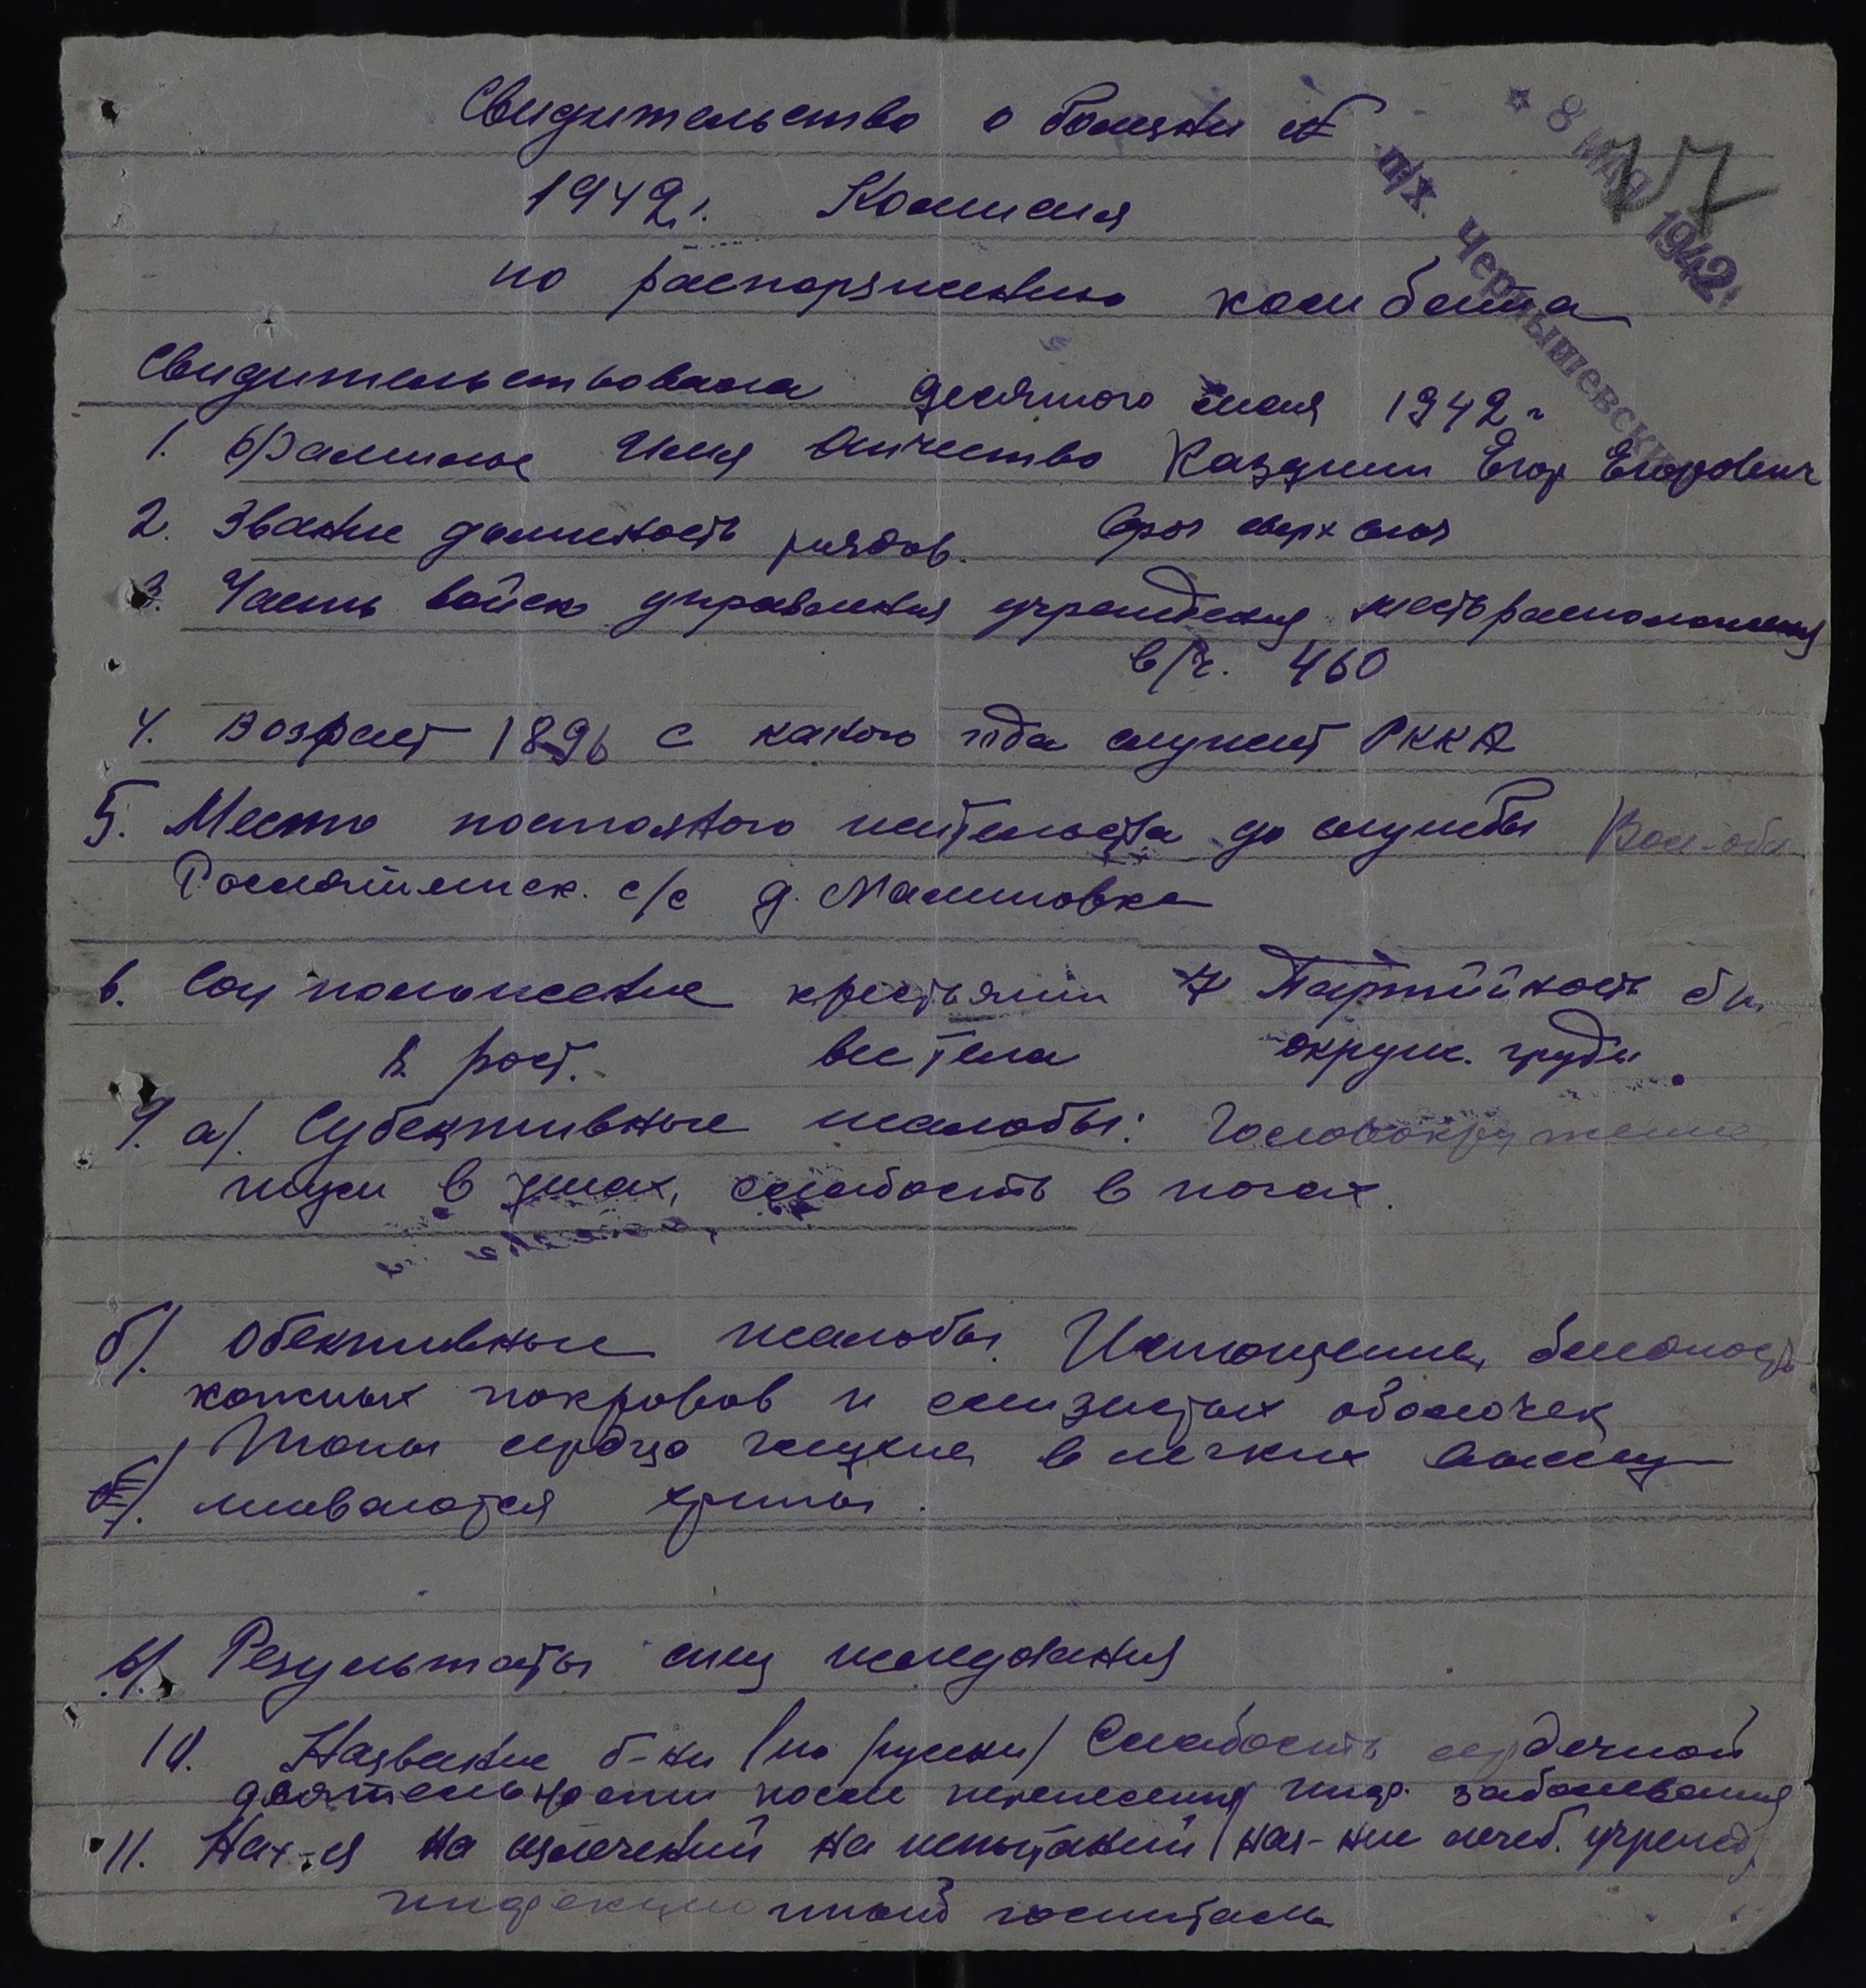 Свидительство о болезни №
8 МАЯ 1942
17
п/х. Чернышевский
1942 г. Комисия
по распоряжению комбата
Свидительствовала десятого мая 1942 г
1. Фамилие Имя Отчество Егор Егорович
2. Звание должность рядов. Сроч сверхсроч
3. Часть войск управления учреждения место расположения
в/ч. 460
4. Возраст 1896 с какого года служит РККА
5. Место постояного жительства до службы
с/с д. Малиновка
6. Соц положение крестьянин 7 Партийность бп.
8. рост. вес тела окруж. груди
9. а/. Субективные жалобы: Головокружение
шум в ушах, слабость в ногах.
б/. Обективные жалобы. Истощение, бледность
кожных покровов и слизистых оболочек
Тоны сердца глухие в легких выслу-
шиваются хрипы.
в/. Результаты спец иследования
10. Название б-ни /по русски/ Слабость сердечной
деятельности после перенесения инф. заболевания
11. Нах-ся на излечений на испытаний /наз-ние лечеб. учрежд/
инфекционный госпиталь